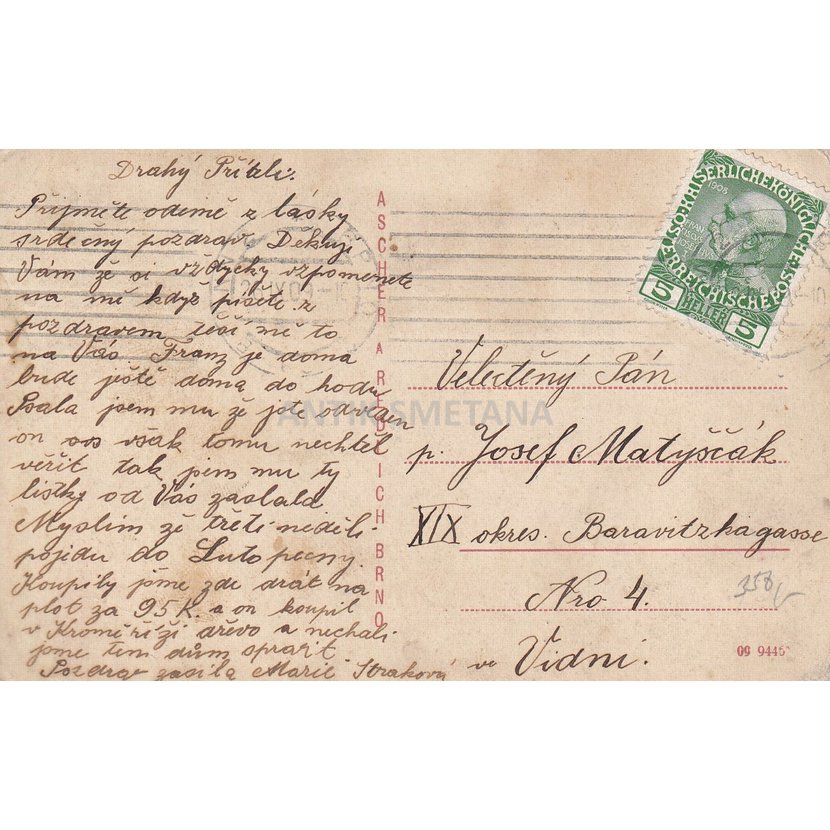 Drahý Příteli.
Přijměte odemě z lásky
srdečný pozdrav Děkuji
Vám že si vždycky vzpomenete
na mě když píšete z
pozdravem těší mě to
na Vás Franz je doma
bude ještě doma do hodu
Psala jsem mu že jste
on však tomu nechtěl
věřit tak jsem mu ty
listky od Vás zaslala
Myslim že třetí neděli
pojedu do Lutopecny
Koupily jsme zde drát na
plot za 95K. a on koupil
v Kroměříži dřevo a nechali
jsme ten dům spravit
Pozdrav zasílá Marie Straková
ASCHER A REDLICH BRNO
KAISERLICHE KÖNIGLICHE
ÖSTERREICHISCHE POST
1908
5 HELLER 5
Velectěný Pán
p. Josef Matyščák
XIX okres. Baravitzkagasse
Nro 4.
ve Vídni.
358
09 9446
ANTIK SMETANA